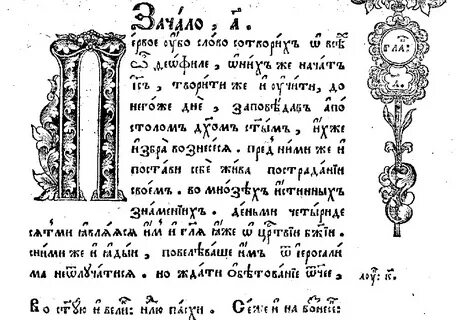 Зачало, а҃.
П
ервое ᲂу҆́бо сло́во сотвори́хъ ѡ҆ всѣ́
ѽ ѳео́филе, ѡ҆ ни́хже нача́тъ
і҆и҃съ, твори́ти же и҆ ᲂу҆чи́ти, до
него́же днѐ, заповѣ́давъ а҆по́
столомъ дх҃омъ ст҃ы́мъ, и҆́хже
и҆збра̀ вознесе́сѧ. пред̾ ни́ми же и҆
поста́ви себѐ жи́ва пострада́нїи
свое́мъ. во мно́зѣхъ и҆́стинныхъ
зна́менїихъ. де́ньми четы́риде
сѧтми ꙗ҆влѧ́ѧсѧ и҆̀мъ и҆ гл҃ѧ ꙗ҆́же ѡ҆ црⷭ҇твїи бж҃їи.
сни́ми же и҆ ꙗ҆ды́й, повелѣва́ше и҆̀мъ ѿ і҆еросали́
ма неѿлуча́тисѧ. но жда́ти ѡ҆бѣтова́нїѧ ѻ҆́ч҃ее,
во ст҃ꙋ́ю и҆ вели: недⷧ҇ю па́схи. Се́же и҆ на вознесе́:
гла:
а҃.
лоу: к҃.